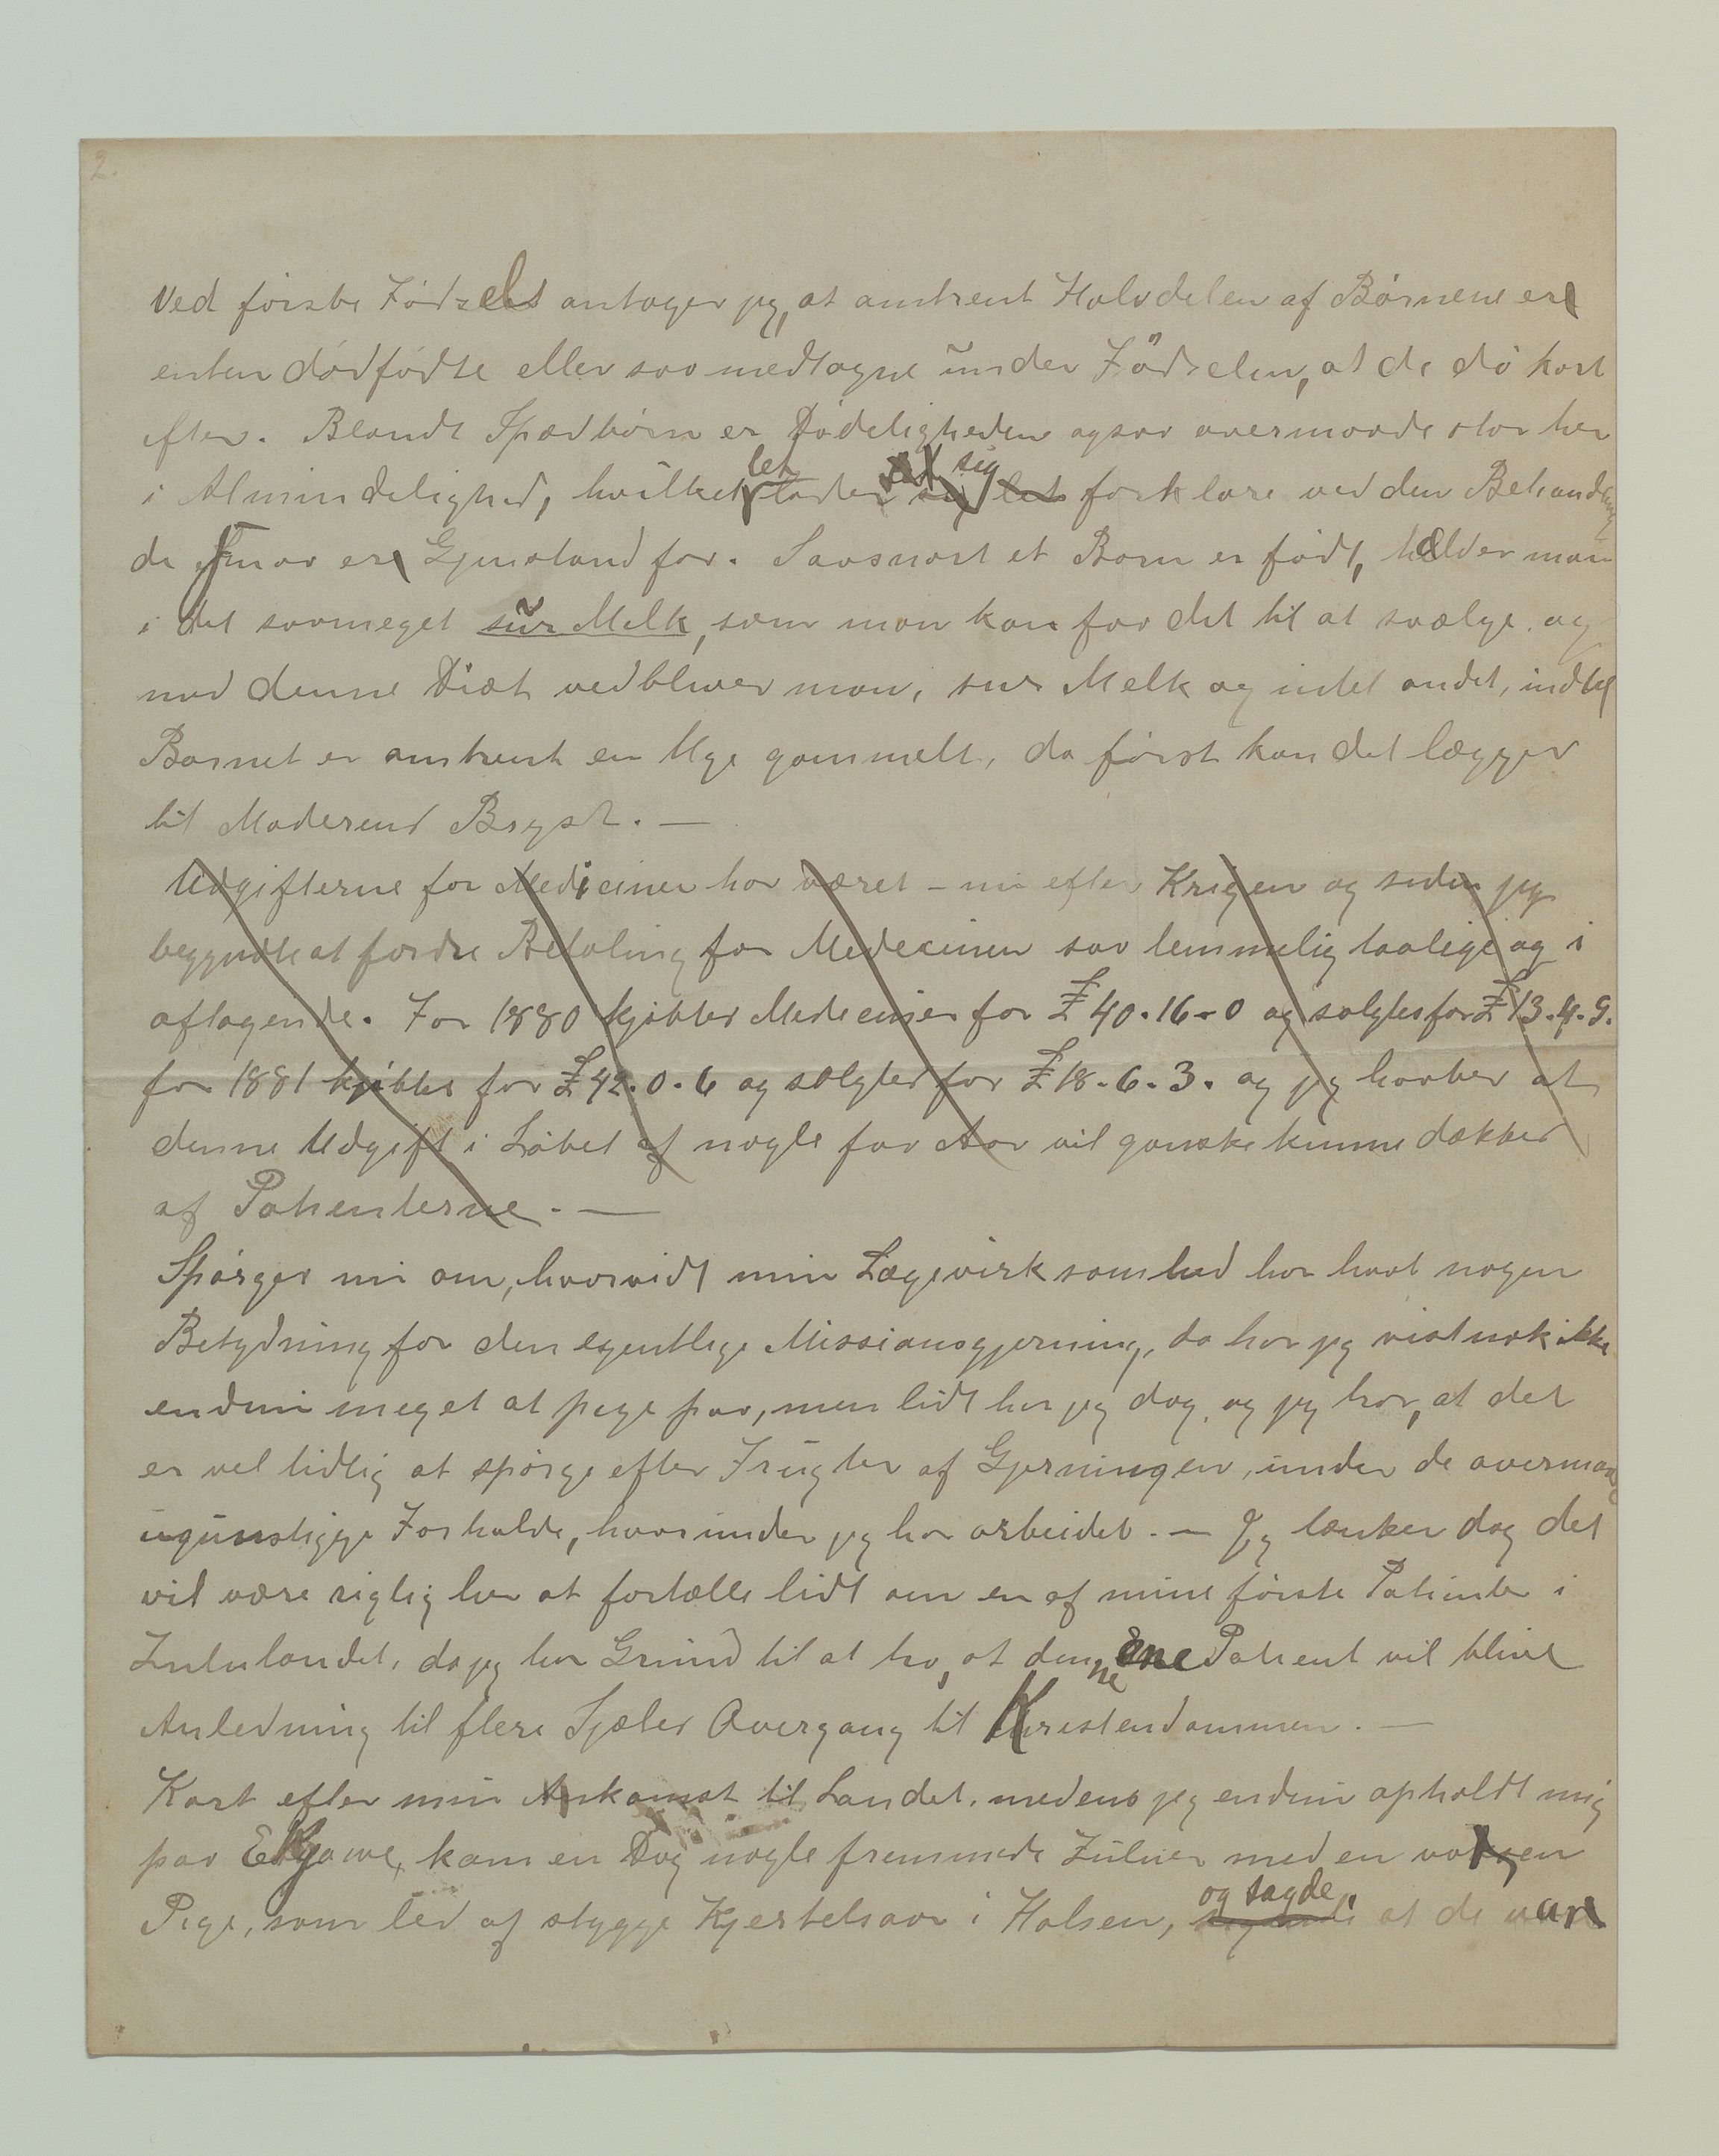 2.
Ved første Fødsels antager jeg, at omtrent Halvdelen af Børnene ere
enten dødfødte eller saa medtagne under Fødselen, at de dø kort
efter. Blandt Spædbørn er Dødeligheden ogsaa overmaade stor her
i Almindelighed, hvilket let lader sig forklare ved den Behandling
de smaa ere Gjenstand for. Saasnart et Barn er født, hælder man
i det saameget sur Melk, som man kan faa det til at svælge, og
med denne Diæt vedbliver man, sur Melk og intet andet, indtil
Barnet er omtrent en Uge gammelt, da først kan det lægges
til Moderens Bryst. —
Udgifterne for Mediciner har været – nu efter Krigen og siden jeg
begyndte at fordre Betaling for Medecinen saa temmelig taalige og i
aftagende. For 1880 kjøbtes Medeciner for £ 40.16-0 og solgtes for £ 13.4.9.
for 1881 kjøbtes for £ 42.0.6 og solgtes for £ 18.6.3. og jeg haaber at
denne Udgift i Løbet af nogle faa Aar vil ganske kunne dækkes
af Patienterne. —
Spørges nu om, hvorvidt min Lægevirksomhed har havt nogen
Betydning for den egentlige Missionsgjerning, da har jeg vistnok ikke
endnu meget at pege paa, men lidt har jeg dog, og jeg tror, at det
er vel tidlig at spørge efter Frugter af Gjerningen, under de overmaade
ugunstige Forholde, hvorunder jeg har arbeidet. — Jeg tænker dog det
vil være rigtig her at fortælle lidt om en af mine første Patienter i
Zululandet, da jeg har Grund til at tro, at denne ene Patient vil blive
Anledning til flere Sjæles Overgang til Kristendommen. —
Kort efter min Ankomst til Landet, medens jeg endnu opholdt mig
paa Ekjowe, kom en Dag nogle fremmede Zuluer med en voksen
Pige, som led af stygge Kjertelsaar i Halsen, og sagde, at de vare